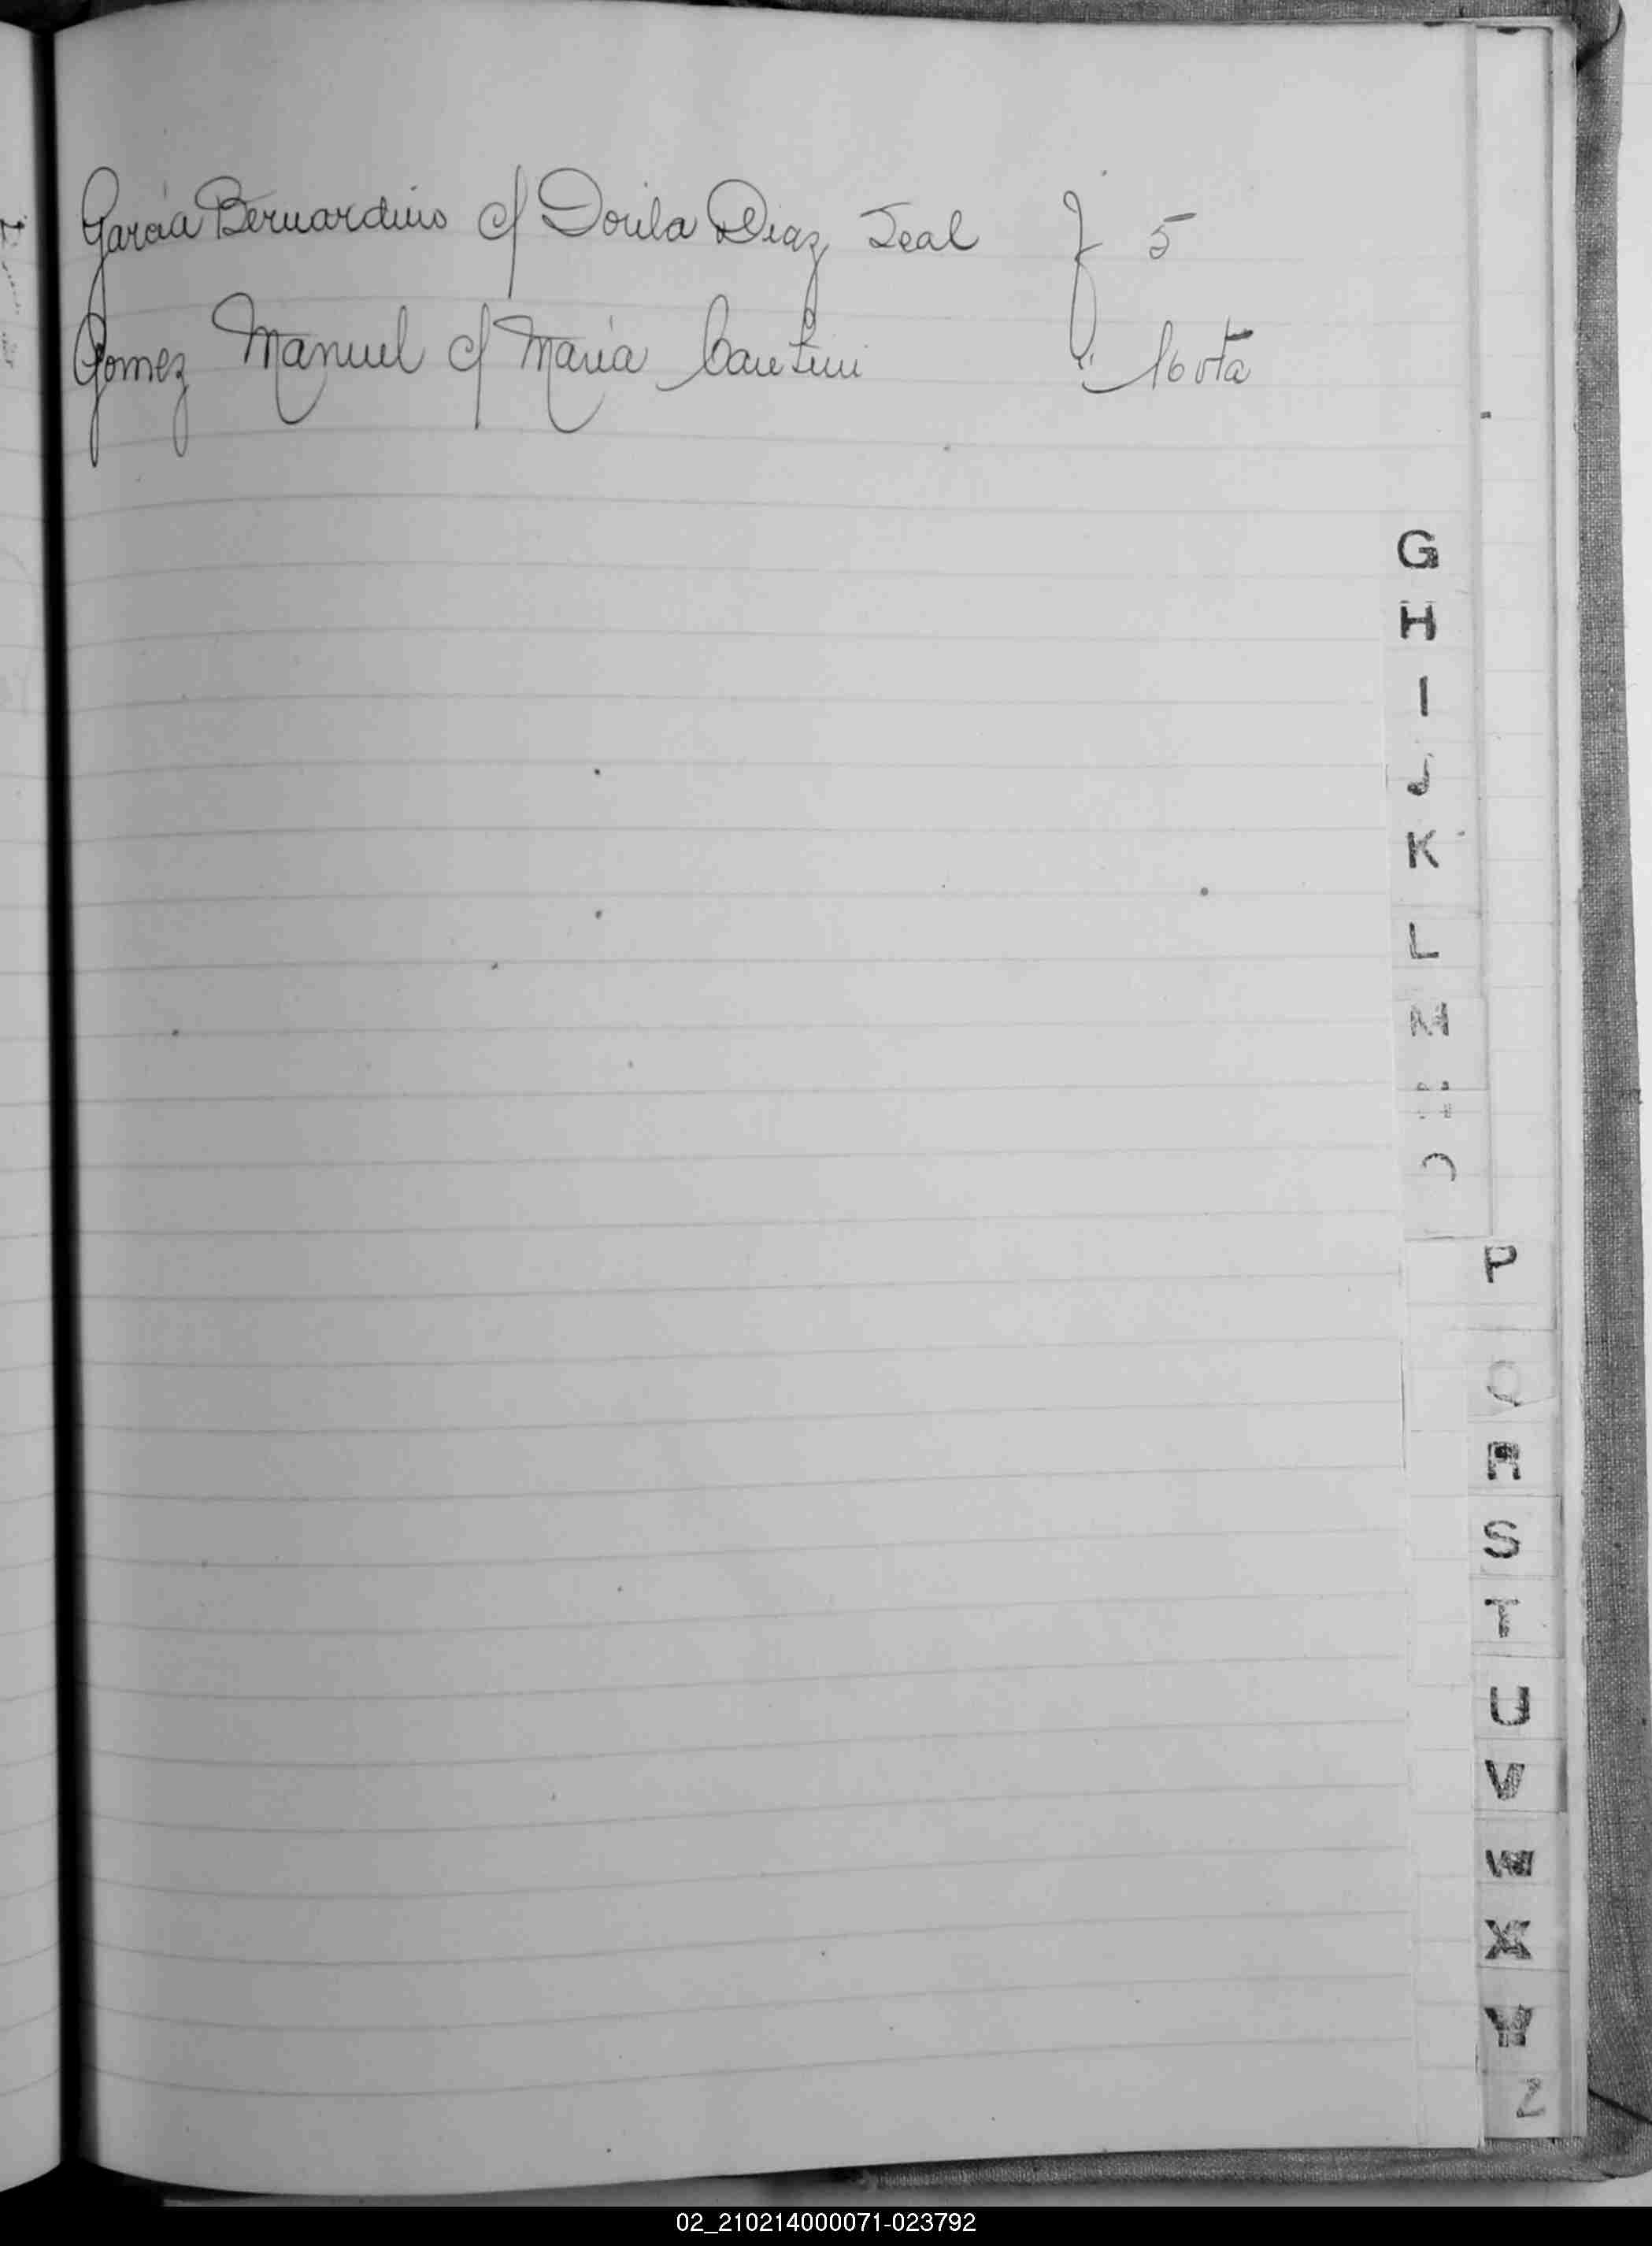 García Bernardino c/ Dorila Diaz Leal f 5
Gomez Manuel c/ María " 16 vta
G
H
I
J
K
L
M
P
Q
R
S
T
U
V
W
X
Y
Z
02_210214000071-023792